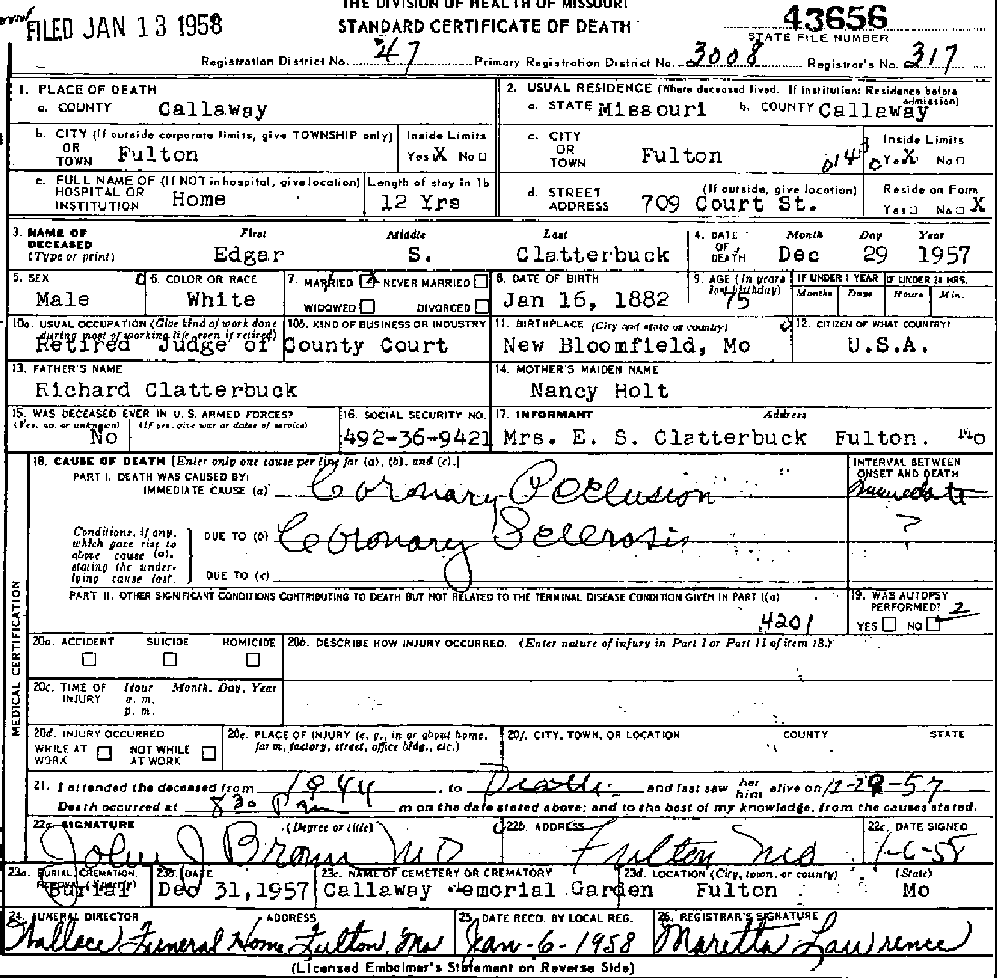 THE DIVISION OF HEALTH OF MISSOURI
FILED JAN 13 1958 STANDARD CERTIFICATE OF DEATH 43656
STATE FILE NUMBER
Registration District No. 47 Primary Registration District No. 3008 Registrar's No. 317
1. PLACE OF DEATH
a. COUNTY Callaway
2. USUAL RESIDENCE (Where deceased lived. If institution: Residence before admission)
a. STATE Missouri b. COUNTY Callaway
b. CITY (If outside corporate limits, give TOWNSHIP only) OR TOWN Fulton
Inside Limits Yes X No
c. CITY OR TOWN Fulton
Inside Limits Yes X No
c. FULL NAME OF (If NOT in hospital, give location) HOSPITAL OR INSTITUTION Home
Length of stay in 1b 12 Yrs
d. STREET ADDRESS (If outside, give location) 709 Court St.
Reside on Farm Yes No X
3. NAME OF DECEASED (Type or print) First Middle Last
Edgar S. Clatterbuck
4. DATE OF DEATH Month Day Year
Dec 29 1957
5. SEX Male
6. COLOR OR RACE White
7. MARRIED NEVER MARRIED
WIDOWED DIVORCED
8. DATE OF BIRTH Jan 16, 1882
9. AGE (In years last birthday) 75
IF UNDER 1 YEAR Months Days
IF UNDER 24 HRS. Hours Min.
10a. USUAL OCCUPATION (Give kind of work done during most of working life, even if retired)
10b. KIND OF BUSINESS OR INDUSTRY
Retired Judge of County Court
11. BIRTHPLACE (City and state or country)
New Bloomfield, Mo
12. CITIZEN OF WHAT COUNTRY?
U.S.A.
13. FATHER'S NAME
Richard Clatterbuck
14. MOTHER'S MAIDEN NAME
Nancy Holt
15. WAS DECEASED EVER IN U.S. ARMED FORCES?
(Yes, no, or unknown) (If yes, give war or dates of service)
No
16. SOCIAL SECURITY NO.
492-36-9421
17. INFORMANT Address
Mrs. E. S. Clatterbuck Fulton. Mo
MEDICAL CERTIFICATION
18. CAUSE OF DEATH [Enter only one cause per line for (a), (b), and (c).]
PART I. DEATH WAS CAUSED BY:
IMMEDIATE CAUSE (a) Coronary Occlusion
INTERVAL BETWEEN ONSET AND DEATH
Immediate
Conditions, if any, which gave rise to above cause (a), stating the underlying cause last.
DUE TO (b) Coronary Sclerosis ?
DUE TO (c)
PART II. OTHER SIGNIFICANT CONDITIONS CONTRIBUTING TO DEATH BUT NOT RELATED TO THE TERMINAL DISEASE CONDITION GIVEN IN PART I(a)
4201
19. WAS AUTOPSY PERFORMED? 2
YES NO
20a. ACCIDENT SUICIDE HOMICIDE
20b. DESCRIBE HOW INJURY OCCURRED. (Enter nature of injury in Part I or Part II of item 18.)
20c. TIME OF INJURY Hour Month, Day, Year
a. m.
p. m.
20d. INJURY OCCURRED
WHILE AT WORK NOT WHILE AT WORK
20e. PLACE OF INJURY (e. g., in or about home, farm, factory, street, office bldg., etc.)
20f. CITY, TOWN, OR LOCATION COUNTY STATE
21. I attended the deceased from 1944, to Death and last saw her him alive on 12-29-57
Death occurred at 8 30 Pm m on the date stated above; and to the best of my knowledge, from the causes stated.
22a. SIGNATURE (Degree or title)
John J Brown MD
22b. ADDRESS
Fulton Mo
22c. DATE SIGNED
1-6-58
23a. BURIAL, CREMATION, REMOVAL (Specify)
Burial
23b. DATE
Dec 31,1957
23c. NAME OF CEMETERY OR CREMATORY
Callaway Memorial Garden
23d. LOCATION (City, town, or county) (State)
Fulton Mo
24. FUNERAL DIRECTOR ADDRESS
Wallace Funeral Home, Fulton, Mo
25. DATE RECD. BY LOCAL REG.
Jan-6-1958
26. REGISTRAR'S SIGNATURE
Maretta Lawrence
(Licensed Embalmer's Statement on Reverse Side)